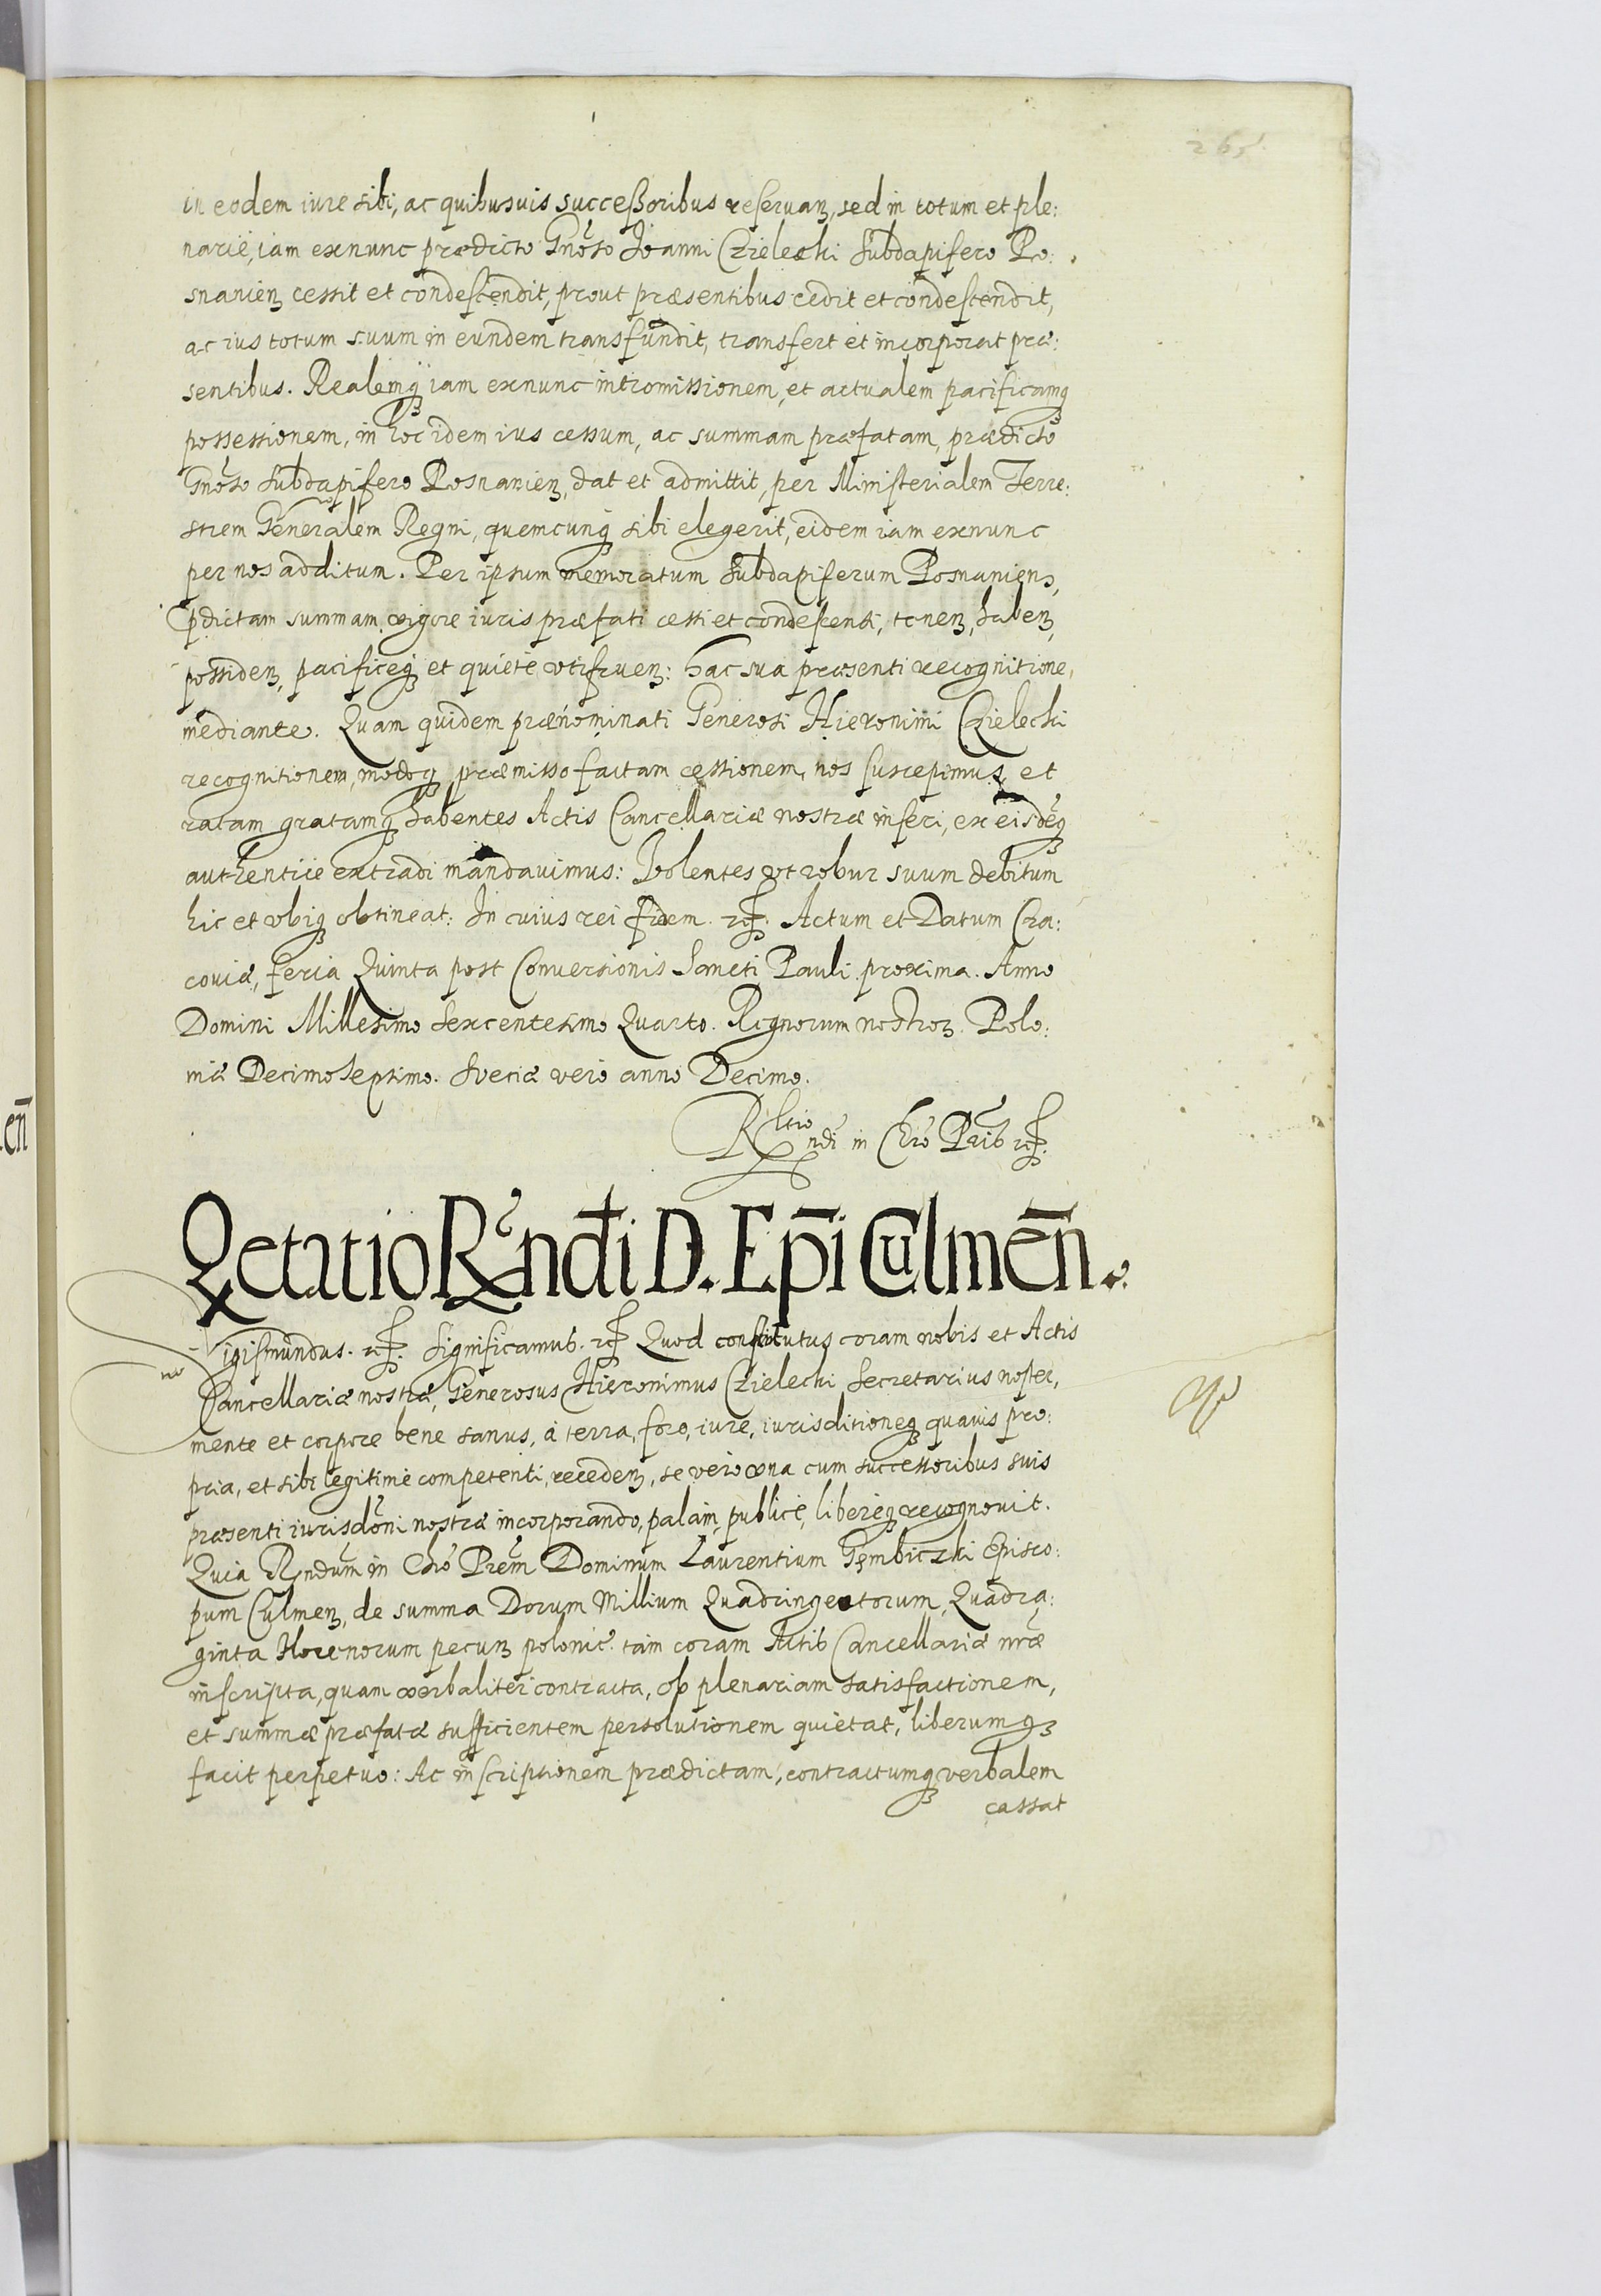 265
in eodem iure sibi, ac quibusuis successoribus reseruanꝫ, sed in totum et ple:
nariè, iam exnunc prædicto Gnoso Joanni Czielecki Subdapifero Po:
snanienꝫ cessit et condescendit, prout præsentibus cedit et condescendit,
ac ius totum suum in eundem transfundit, transfert et incorporat præ:
sentibus. Realemqꝫ iam exnunc intromissionem, et actualem pacificamqꝫ
possessionem, in hoc idem ius cessum, ac summam præfatam, prædicto
Gnoso Subdapifero Posnanienꝫ, dat et admittit, per Ministerialem Terre:
strem Generalem Regni, quemcunqꝫ sibi elegerit, eidem iam exnunc
per nos additum. Per ipsum memoratum Subdapiferum Posnaniens,
pdictam summam vigore iuris præfati cessi et condescensi, tenenꝫ, habenꝫ,
possidenꝫ, pacificeqꝫ et quietè vtifruenꝫ: hac sua præsenti recognitione
mediante. Quam quidem prænominati Generosi Hieronimi Czielecki
recognitionem, modoqꝫ præmisso factam cessionem, nos suscepimus, et
ratam gratamqꝫ habentes Actis Cancellariæ nostræ inseri, ex eisdēqꝫ
authenticè extradi mandauimus: Volentes vt robur suum debitum
hic et vbiqꝫ obtineat: In cuius rei fidem. rcf. Actum et Datum Cra:
couiæ, feria Quinta post Conuersionis Sancti Pauli proxima. Anno
Domini Millesimo Sexcentesimo Quarto. Regnorum nostroꝝ Polo:
niæ Decimo Septimo. Sveciæ verò anno Decimo.
Rltio Rndi in Chro Pris rcf.
Qetatio Rndi D. Epī Culmen̄.
Sigismundus. rcf. Significamus. rcf Quod constitutus coram nobis et Actis
Cancellariæ nostræ, Generosus Hieronimus Czielecki Secretarius noster,
mente et corpore bene sanus, à terra, foro, iure, iurisditioneqꝫ quauis pro:
pria, et sibi legitimè competenti, recedenꝫ, se verò vna cum successoribus suis
præsenti iurisdoni nostræ incorporando, palàm, publicè, liberèqꝫ recognouit.
Quia Rndum in Chro Prem Dominum Laurentium Gembiczki Episco:
pum Culmenꝫ, de summa Dorum Millium Quadringentorum, Quadra:
ginta Florenorum pecunꝫ polonic. tàm coram Actis Cancellariæ nræ
inscripta, quam verbaliter contracta, ob plenariam satisfactionem,
et summæ præfatæ sufficientem persolutionem quietat, liberumqꝫ
facit perpetuo: Ac inscriptionem prædictam, contractumqꝫ verbalem
cassat